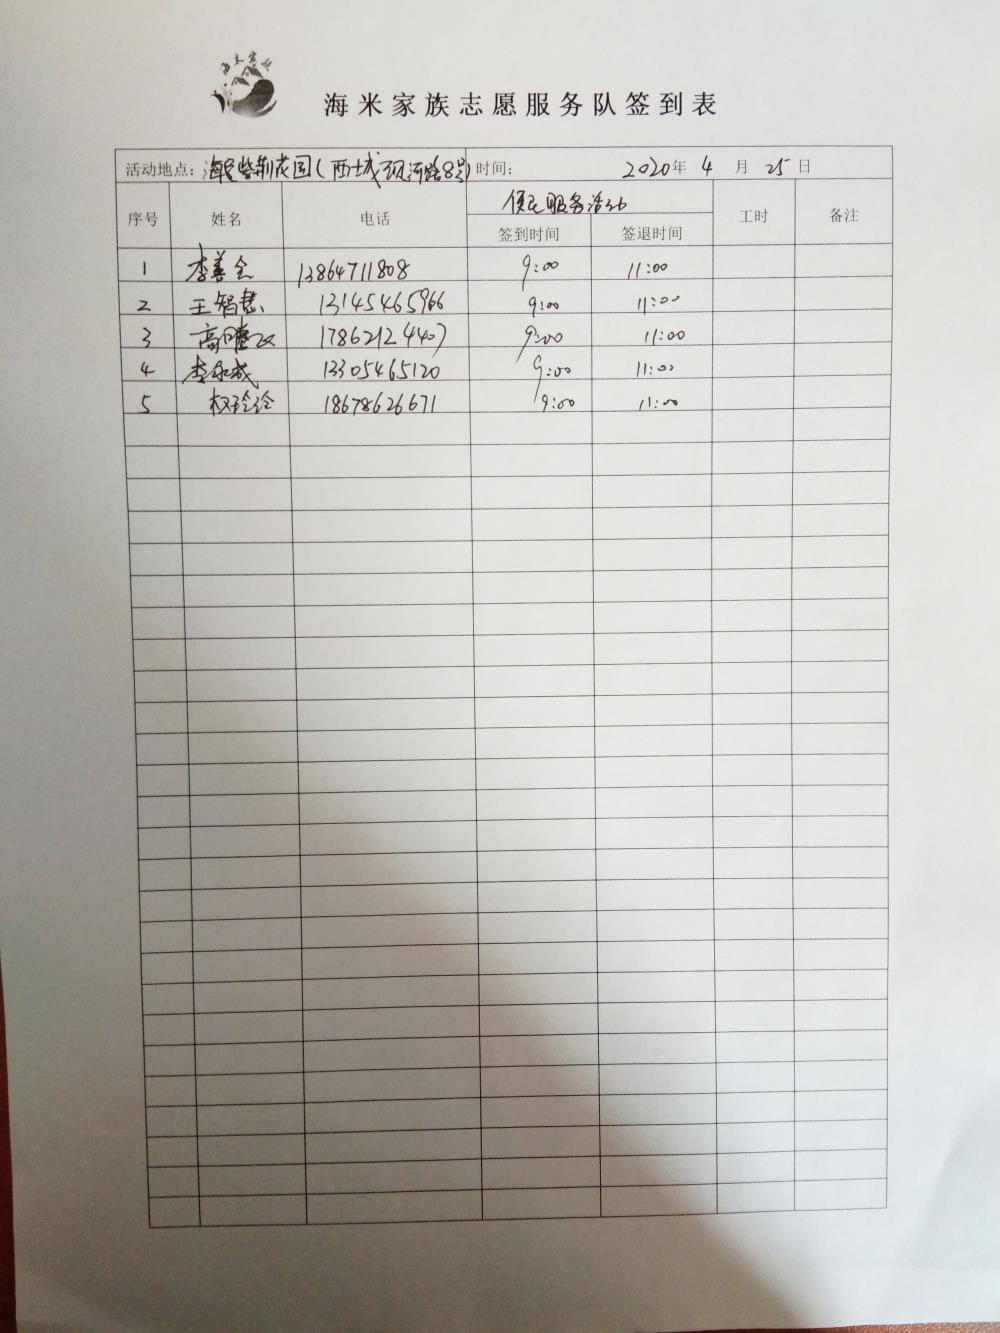 海米家族
海米家族志愿服务队签到表
活动地点：海民紫荆花园(西土城环河路8号) 时间： 2020年 4 月 25 日
序号 姓名 电话 便民服务活动 工时 备注
签到时间 签退时间
1 李善全 13864711808 9:00 11:00
2 王智慧 13145465966 9:00 11:00
3 17862124407 9:00 11:00
4 李永成 13305465120 9:00 11:00
5 权玲玲 18678626671 9:00 11:00